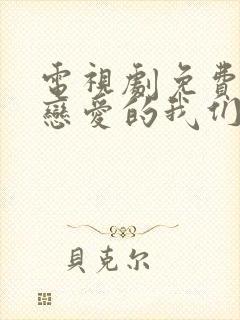 電視劇免費
戀愛的我们
貝克尔